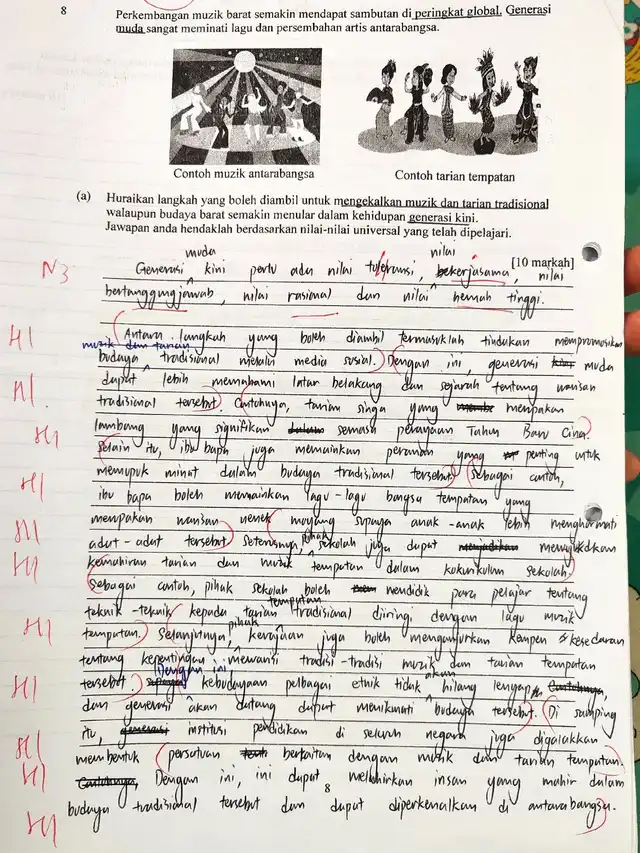 8
Perkembangan muzik barat semakin mendapat sambutan di peringkat global. Generasi
muda sangat meminati lagu dan persembahan artis antarabangsa.
Contoh muzik antarabangsa
Contoh tarian tempatan
(a) Huraikan langkah yang boleh diambil untuk mengekalkan muzik dan tarian tradisional
walaupun budaya barat semakin menular dalam kehidupan generasi kini.
Jawapan anda hendaklah berdasarkan nilai-nilai universal yang telah dipelajari.
[10 markah]
muda nilai
N3 Generasi kini perlu ada nilai toleransi, bekerjasama, nilai
bertanggungjawab, nilai rasional dan nilai hemah tinggi.
H1 Antara langkah yang boleh diambil termasuklah tindakan mempromosikan
muzik dan tarian
budaya tradisional melalui media sosial. Dengan ini, generasi muda
H1 dapat lebih memahami latar belakang dan sejarah tentang warisan
tradisional tersebut. Contohnya, tarian singa yang merupakan
H1 lambang yang signifikan semasa perayaan Tahun Baru Cina.
Selain itu, ibu bapa juga memainkan peranan yang penting untuk
memupuk minat dalam budaya tradisional tersebut. Sebagai contoh,
H1 ibu bapa boleh memainkan lagu-lagu bangsa tempatan yang
merupakan warisan nenek moyang supaya anak-anak lebih menghormati
H1 adat-adat tersebut. Seterusnya, pihak sekolah juga dapat
H1 kemahiran tarian dan muzik tempatan dalam kokurikulum sekolah.
Sebagai contoh, pihak sekolah boleh mendidik para pelajar tentang
tempatan
teknik-teknik kepada tarian tradisional diiringi dengan lagu muzik
H1 tempatan. Selanjutnya, pihak kerajaan juga boleh menganjurkan kempen kesedaran
tentang kepentingan mewarisi tradisi-tradisi muzik dan tarian tempatan
Dengan ini akan
H1 tersebut. kebudayaan pelbagai etnik tidak hilang lenyap
dan generasi akan datang dapat menikmati budaya tersebut. Di samping
itu, institusi pendidikan di seluruh negara juga digalakkan
H1 membentuk persatuan berkaitan dengan muzik dan tarian tempatan.
H1 Dengan ini, ini dapat melahirkan insan yang mahir dalam
8
H1 budaya tradisional tersebut dan dapat diperkenalkan di antarabangsa.